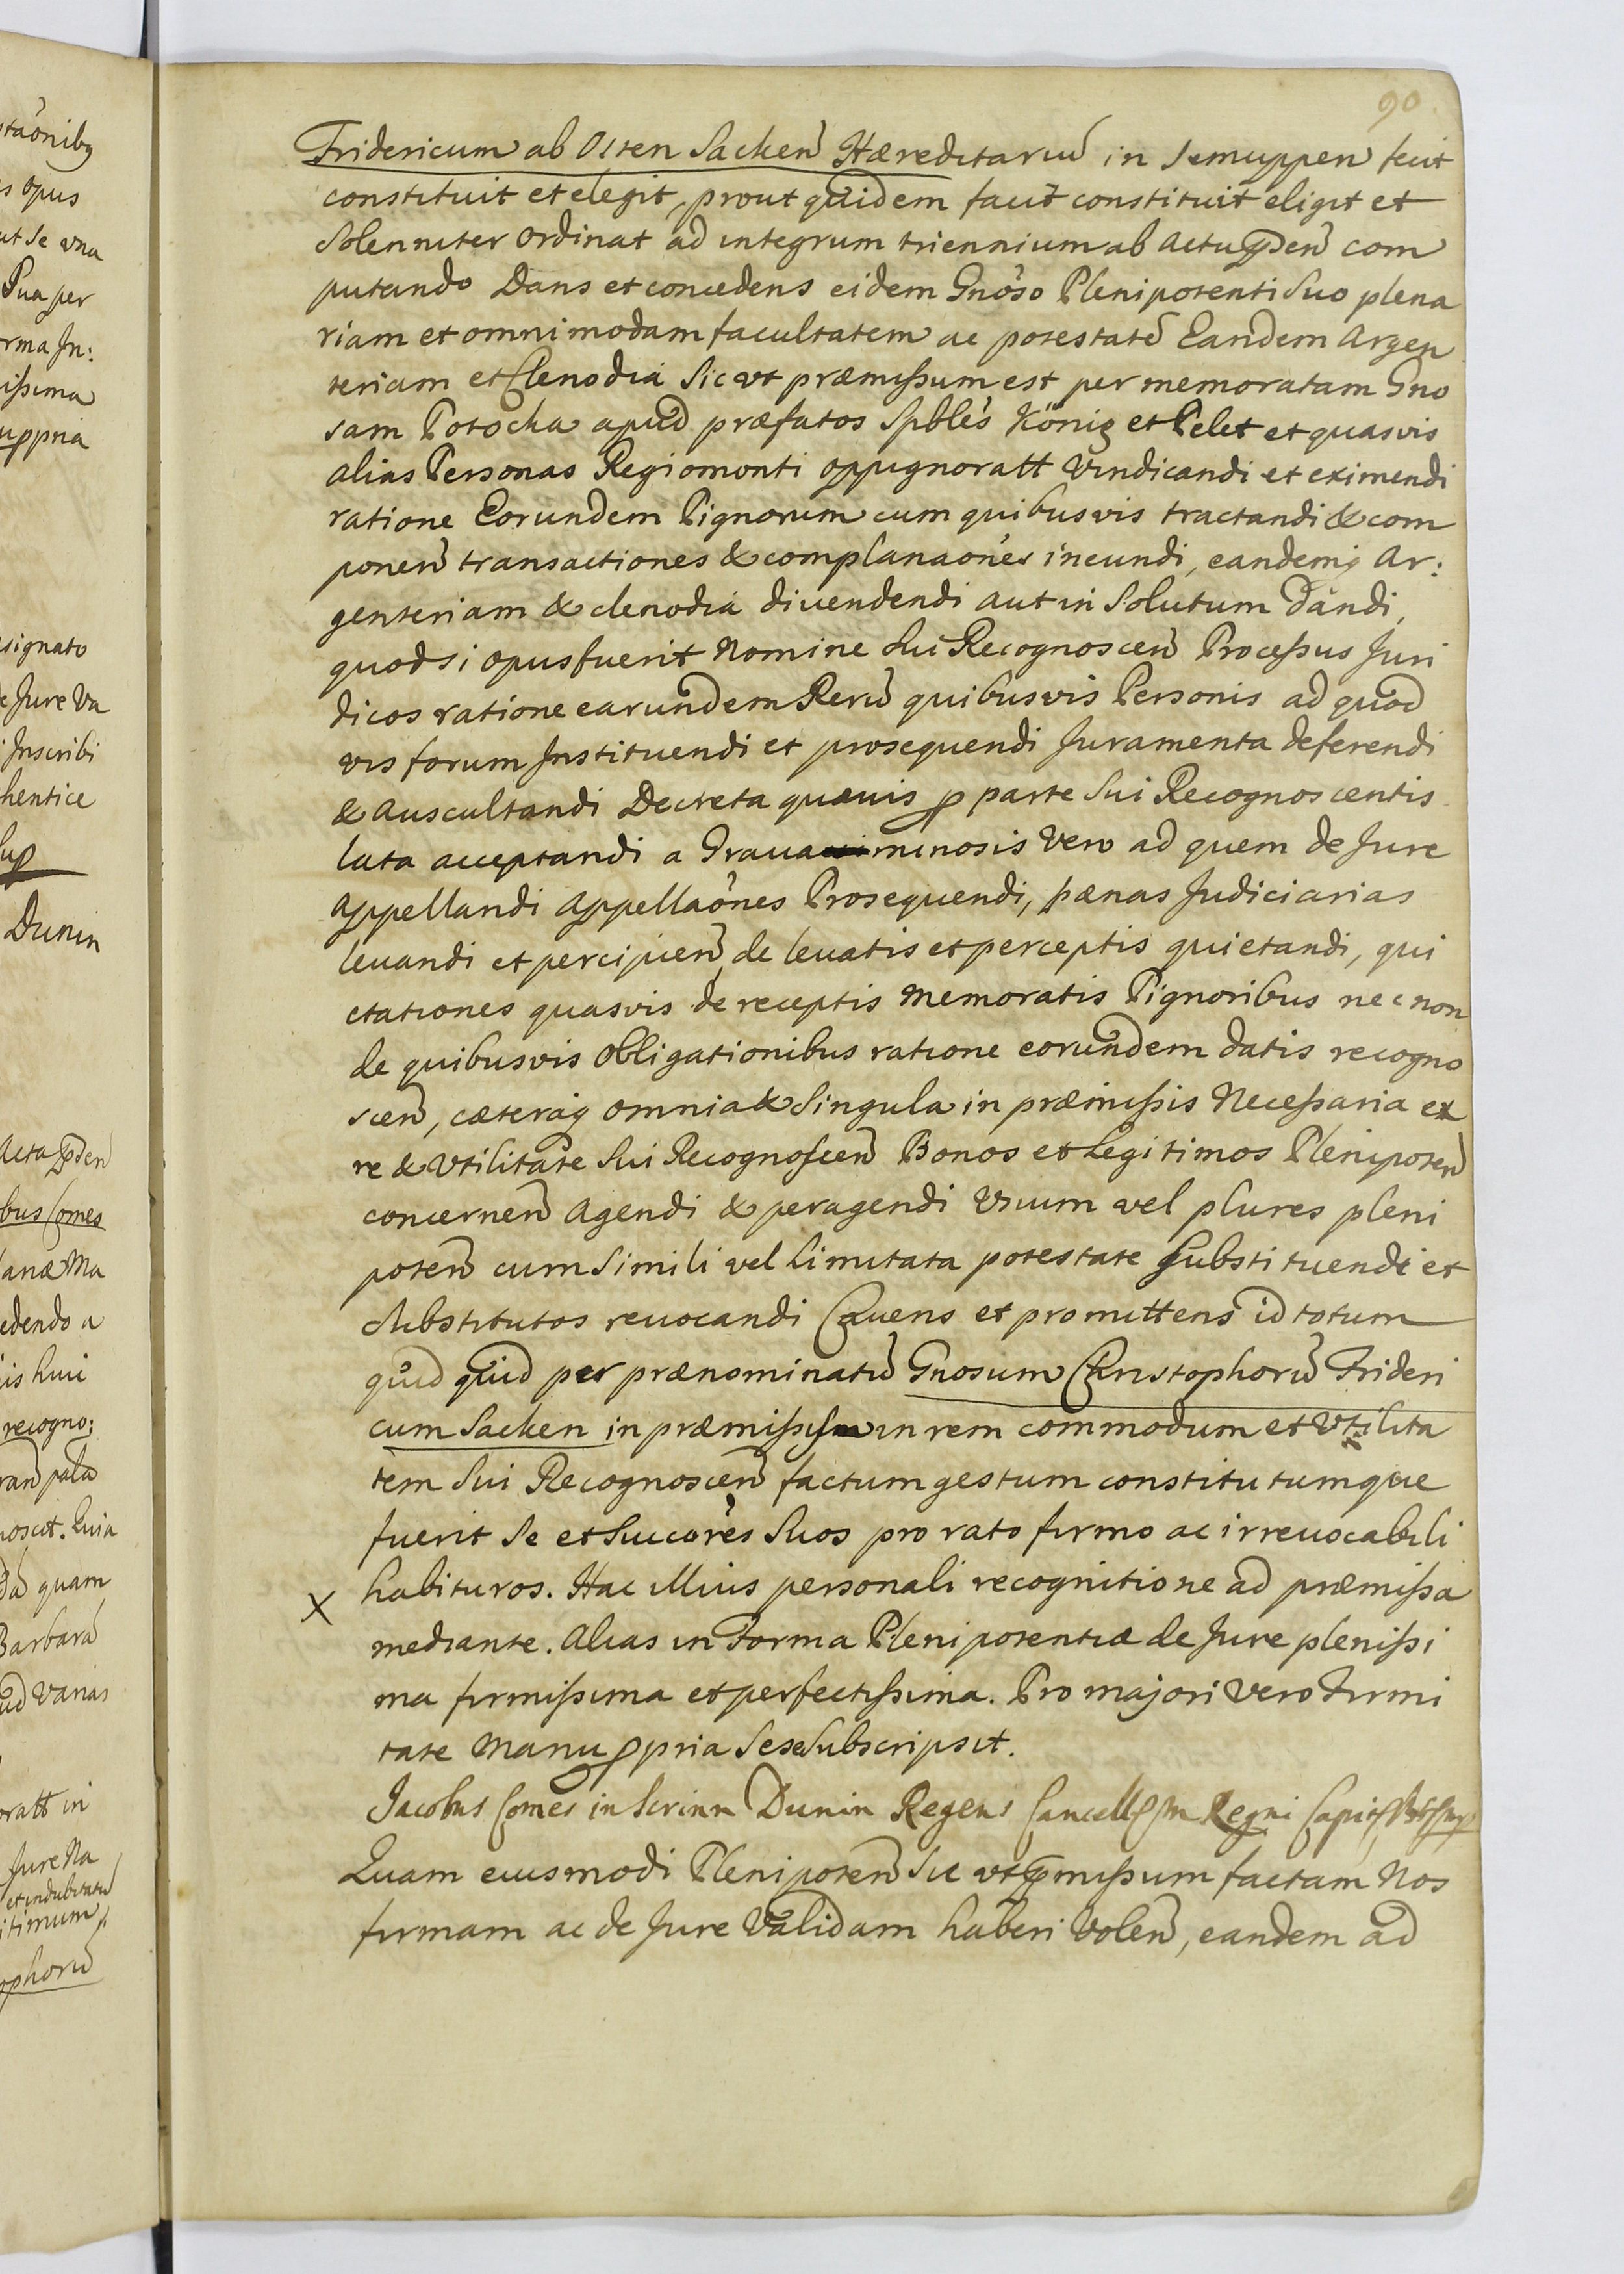 90
Fridericum ab Osten Sacken Hæreditariũ in Semuppen fecit
constituit et elegit, prout quidem facit constituit eligit et
Solenniter Ordinat ad integrum triennium ab Actu p̃den̄ com
putando Dans et concedens eidem Gnõso Plenipotenti Suo plena
riam et omnimodam facultatem ac potestatẽ Eandem Argen
teriam et Clenodia Sic ut præmissum est per memoratam Gno
sam Potocka apud præfatos Spbles König et Pelet et quasvis
alias Personas Regiomonti oppignoratt Vindicandi et eximendi
ratione Eorundem Pignorum cum quibusvis tractandi & com
ponen̄ transactiones & complanaõnes ineundi, eandemq̃ Ar:
genteriam & clenodia divendendi aut in Solutum dandi,
quod si opus fuerit Nomine Sui Recognoscen̄ Processus Juri
dicos ratione earundem Rerũ quibusvis Personis ad quod
vis forum Instituendi et prosequendi Juramenta deferendi
& auscultandi Decreta quævis p parte Sui Recognoscentis
lata acceptandi a Gravaminosis Vero ad quem de Jure
Appellandi Appellaõnes Prosequendi, pænas Judiciarias
levandi et percipien̄, de levatis et perceptis quietandi, qui
etationes quasvis de receptis Memoratis Pignoribus nec non
de quibusvis Obligationibus ratione eorundem datis recogno
scen̄, cæteraq̃ omnia & Singula in præmissis Necessaria ex
re & Utilitate Sui Recognoscen̄ Bonos et Legitimos Plenipoten̄
concernen̄ Agendi & peragendi Unum vel plures pleni
poten̄ cum Simili vel Limitata potestate Substituendi et
Substitutos revocandi Cavens et promittens id totum
quid quid per prænominatũ Gnosum Christophorũ Frideri
cum Sacken in præmissis in rem commodum et Utilita
tem Sui Recognoscen̄ factum gestum constitutumque
fuerit Se et Succores Suos pro rato firmo ac irrevocabili
X habituros. Hac illius personali recognitione ad præmissa
mediante. Alias in Forma Plenipotentiæ de Jure plenissi
ma firmissima et perfectissima. Pro majori Vero Firmi
tate Manu ppria Sese Subscripsit.
Jacobus Comes in Scrinn Dunin Regens Cancell Regni
Quam eiusmodi Plenipoten̄ Sic ut p̃missum factam Nos
firmam ac de Jure Validam haberi Volen̄, eandem ad